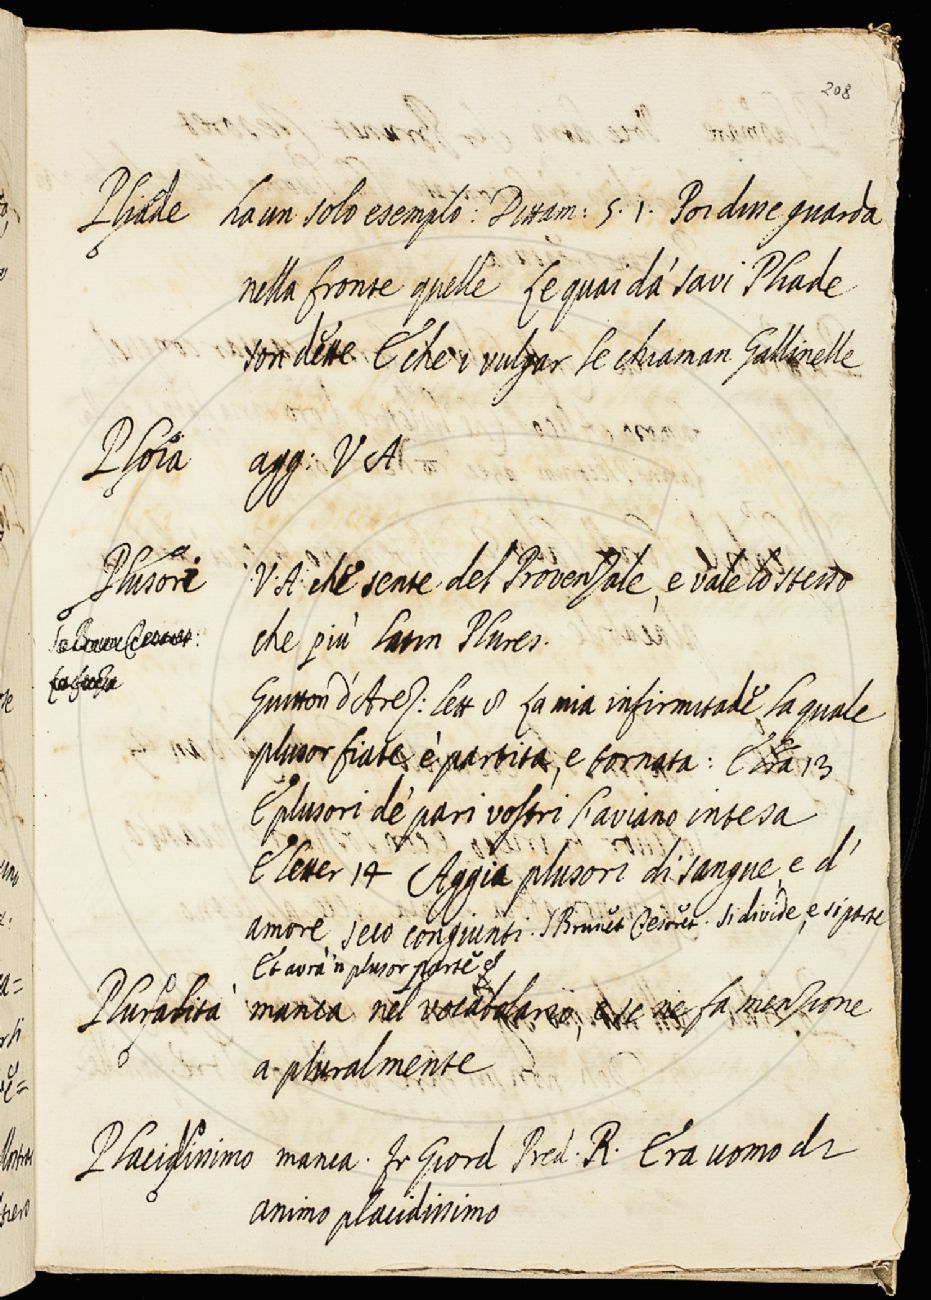 208
Pliade ha un solo esempio: Dittam: 5. 1. Poi disse guarda
nella fronte quelle Le quai da' savi Pliade
son dette E che i vulgar le chiaman Gallinelle
agg: V A
Plusori V. A. che sente del Provenzale, e vale lo stesso
che più latin Plures.
Guitton d'Arez: lett 8 La mia infirmitade la quale
plusor fiate è partita, e tornata: E 13
E plusori de' pari vostri l'aviano intesa
E letter 14 Aggia plusori di sangue, e d'
amore seco congiunti. Brunet si divide, e si parte
Et avrà 'n plusor parte
Pluralità manca nel vocabolario, e se ne fa menzione
a pluralmente
Placidissimo manca. Fr Giord Pred. R. Era uomo di
animo placidissimo